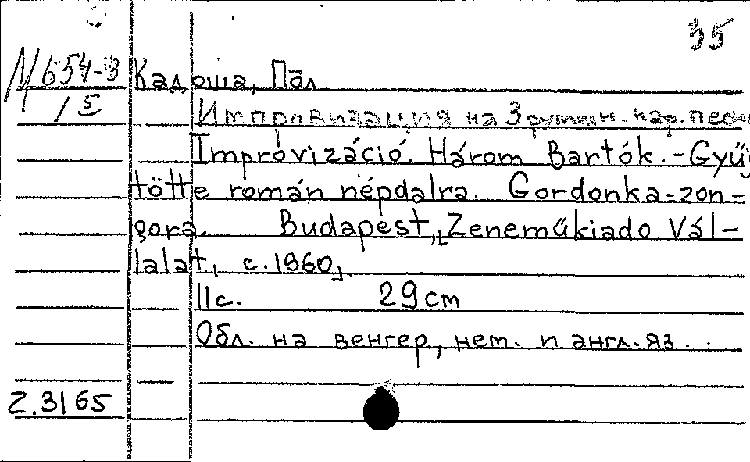 35
М 654-3 Кадоша, Пол
1 5
Импровизация на 3 румын. нар. песни
Impróvizáció. Három Bartók.-Gyüj
tötte román népdalra. Gordonka-zon-
gora. Budapest, Zeneműkiado Vál-
lalat, c.1960,
11c. 29cm
Обл. на венгер, нем. и англ. яз.
2.3165